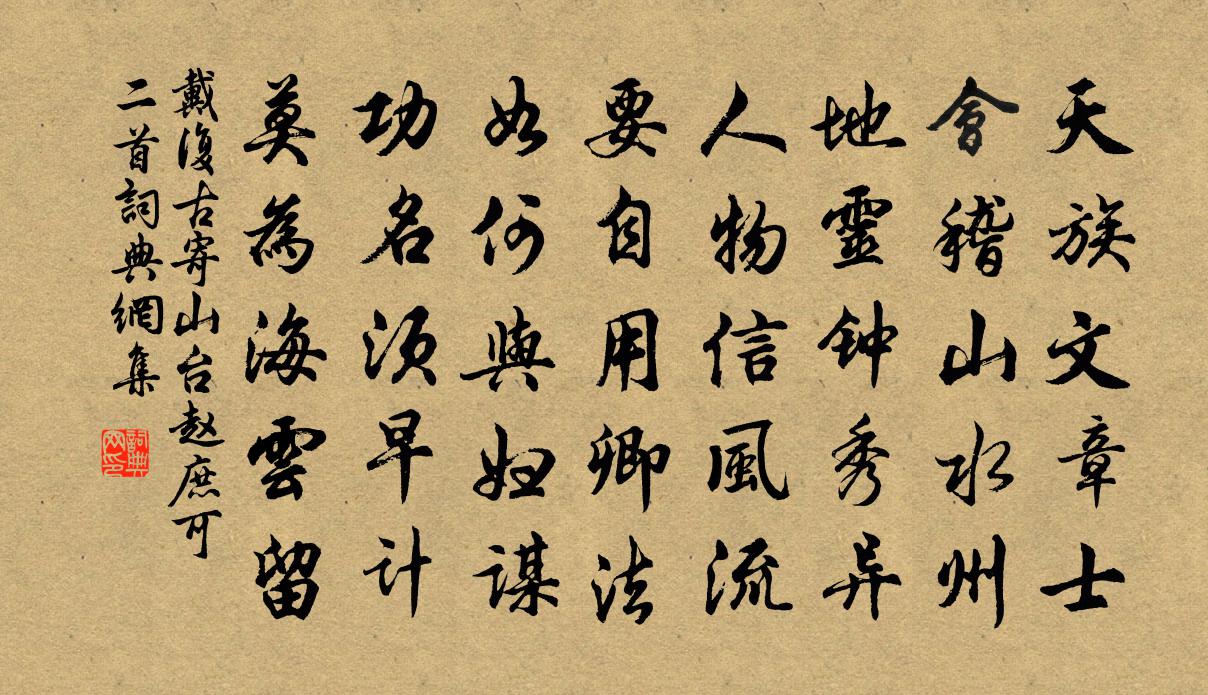 天族文章士
會稽山水州
地靈钟秀异
人物信風流
要自用卿法
如何與婦謀
功名須早计
莫為海雲留
戴復古寄山台赵庶可
二首詞典網集
詞典
网印